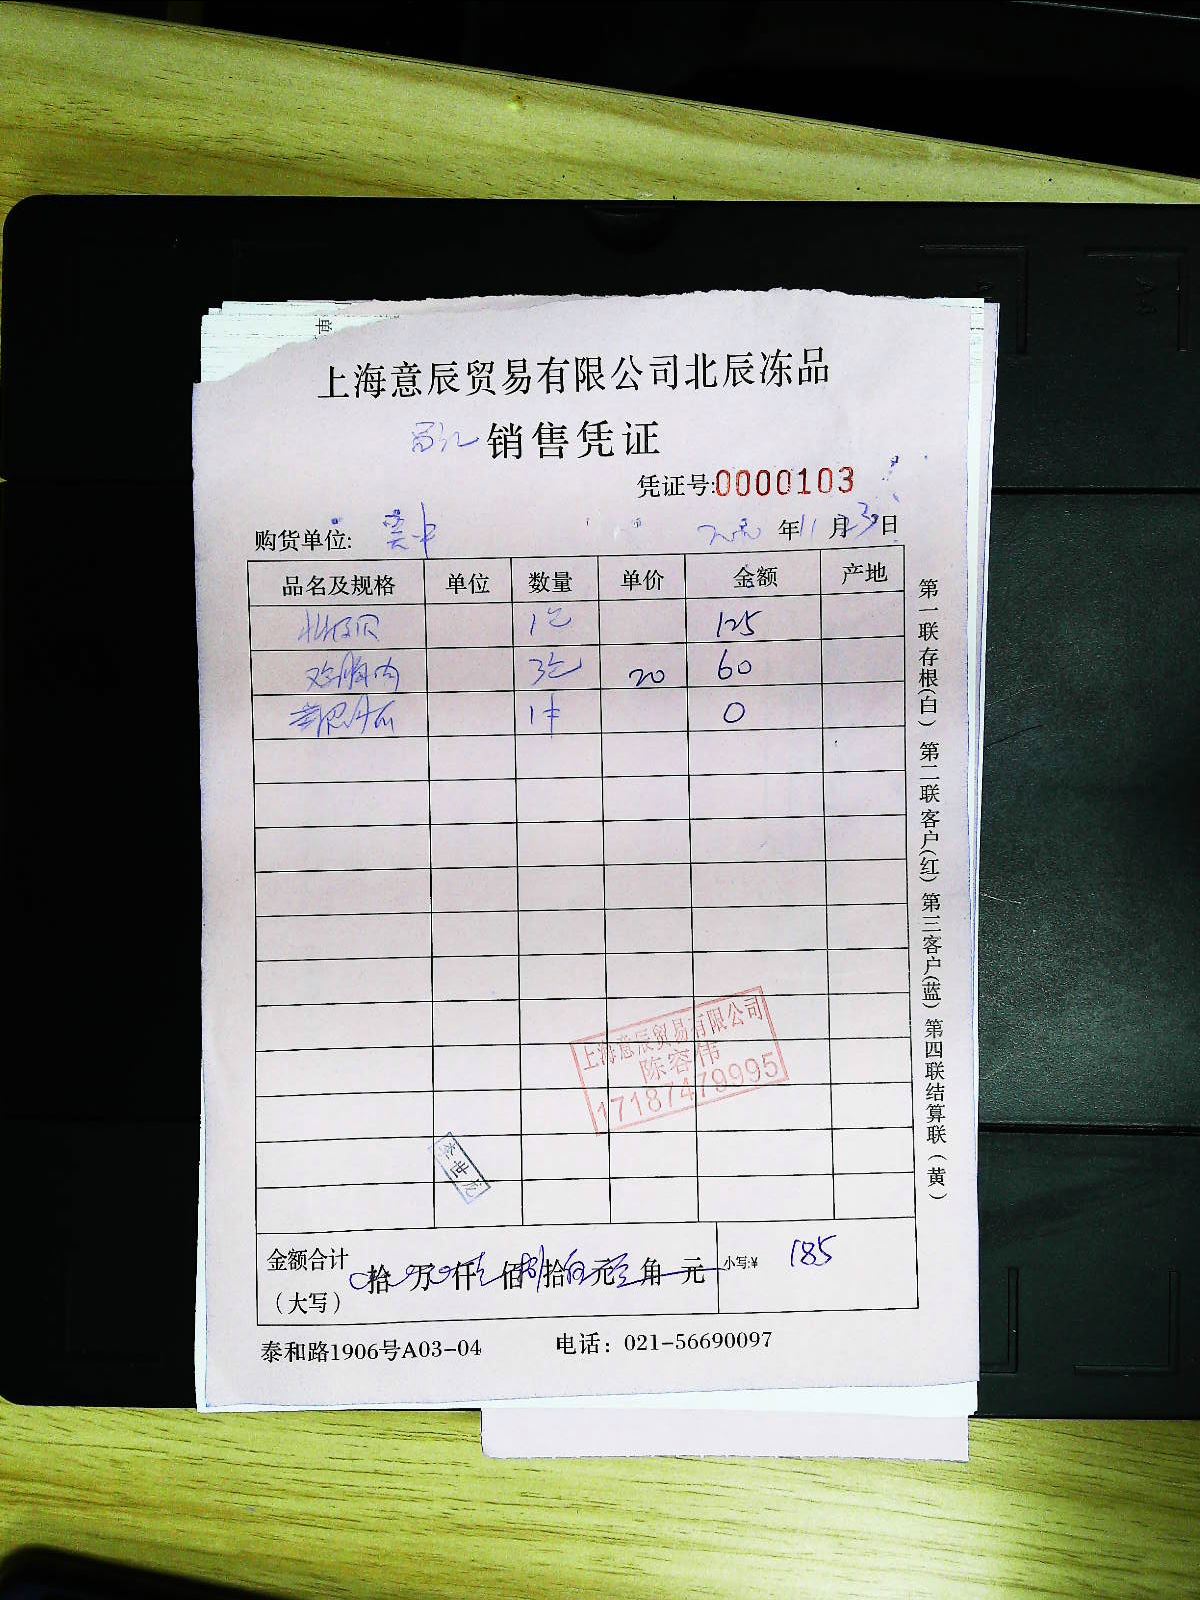 单
上海意辰贸易有限公司北辰冻品
销售凭证
凭证号:0000103
购货单位:
年11月23日
品名及规格 单位 数量 单价 金额 产地
北极贝 1包 125
鸡脯肉 3包 20 60
1 0
上海意辰贸易有限公司
陈容伟
17187479995
李世
金额合计
（大写） 拾 万 仟 佰 拾 元 角 元 小写:¥ 185
泰和路1906号A03-04 电话：021-56690097
第一联存根(白) 第二联客户(红) 第三客户(蓝) 第四联结算联(黄)